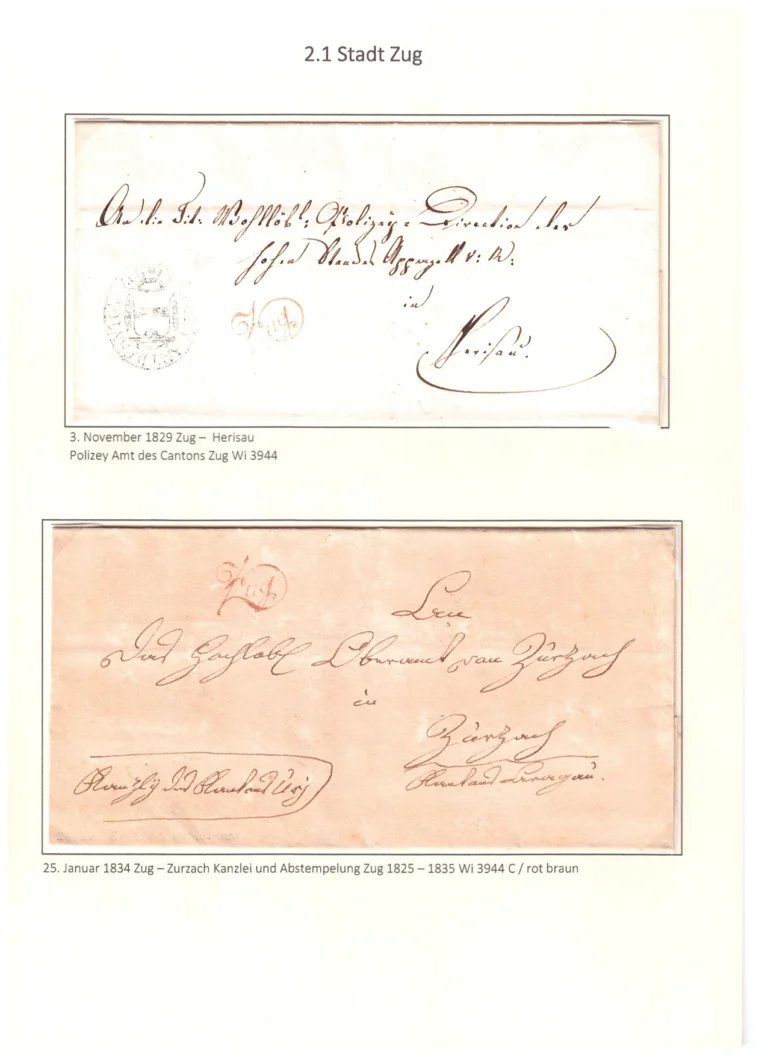 2.1 Stadt Zug
An die Tit: Wohllöbl: Polizey-Direction des
hohen Standes Appenzell v: R:
in
Zug
Herisau.
3. November 1829 Zug – Herisau
Polizey Amt des Cantons Zug Wi 3944
Zug
An
Das Hochlobl Oberamt von Zurzach
in
Zurzach
Kanzley des Kantons Urj
Kanton Aargau.
25. Januar 1834 Zug – Zurzach Kanzlei und Abstempelung Zug 1825 – 1835 Wi 3944 C / rot braun